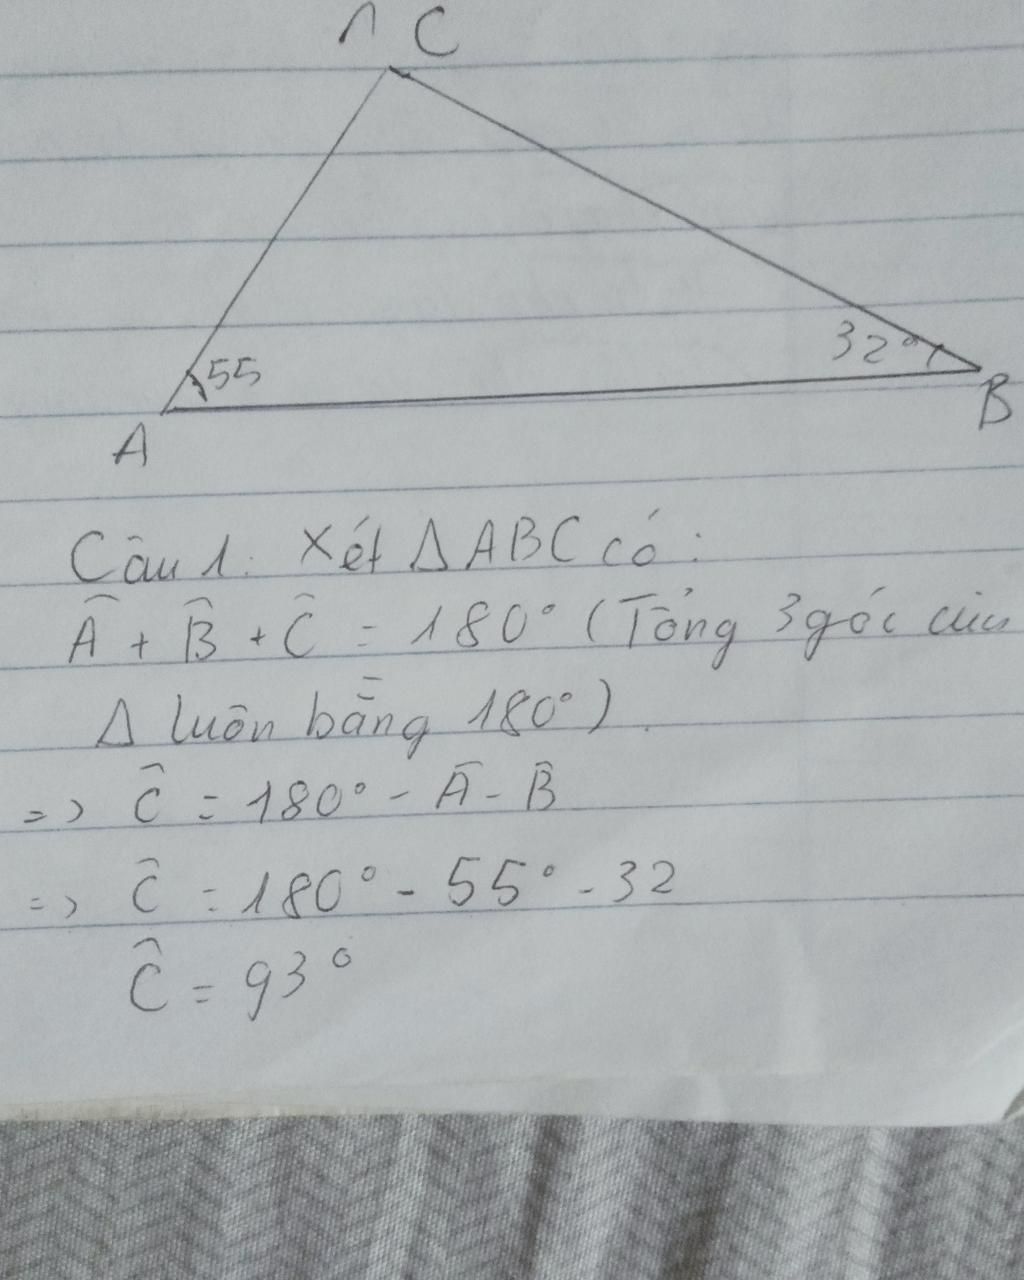 C
55
32°
A
B
Câu 1: Xét ΔABC có:
Â + B̂ + Ĉ = 180° (Tổng 3 góc của
Δ luôn bằng 180°).
=> Ĉ = 180° - Â - B̂
=> Ĉ = 180° - 55° - 32
Ĉ = 93°